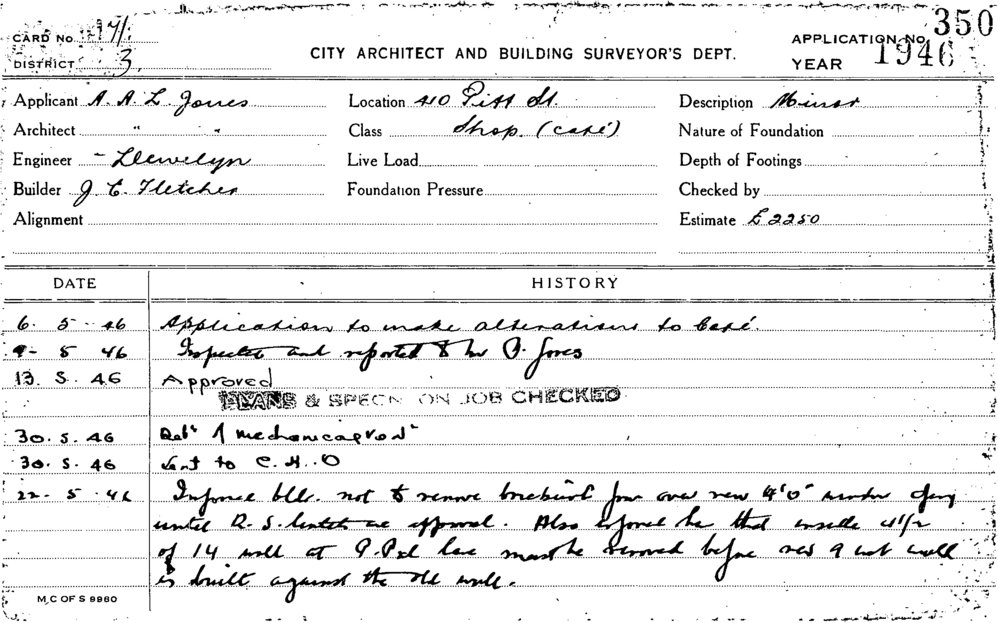 350
CARD No. 171.
CITY ARCHITECT AND BUILDING SURVEYOR'S DEPT.
APPLICATION No.
DISTRICT 3.
YEAR 1946
Applicant A. A. L. Jones
Location 410 Pitt St.
Description Minor
Architect " "
Class Shop. (café)
Nature of Foundation
Engineer - Llewelyn
Live Load
Depth of Footings
Builder J. C. Fletcher
Foundation Pressure
Checked by
Alignment
Estimate £2250
DATE
HISTORY
6. 5 - 46 Application to make alterations to Café.
9 - 5 46 Inspected and reported to Mr Jones
13. 5. 46 Approved
PLANS & SPECN ON JOB CHECKED
30. 5. 46
30. 5. 46 Sent to C. H. O
22 - 5 - 46 not to remove from over new 9'0"
until R. S. approval. Also that inside 4½
of 14 wall at must be removed before new 9 wall
is built against the old wall.
M.C OF S 9980